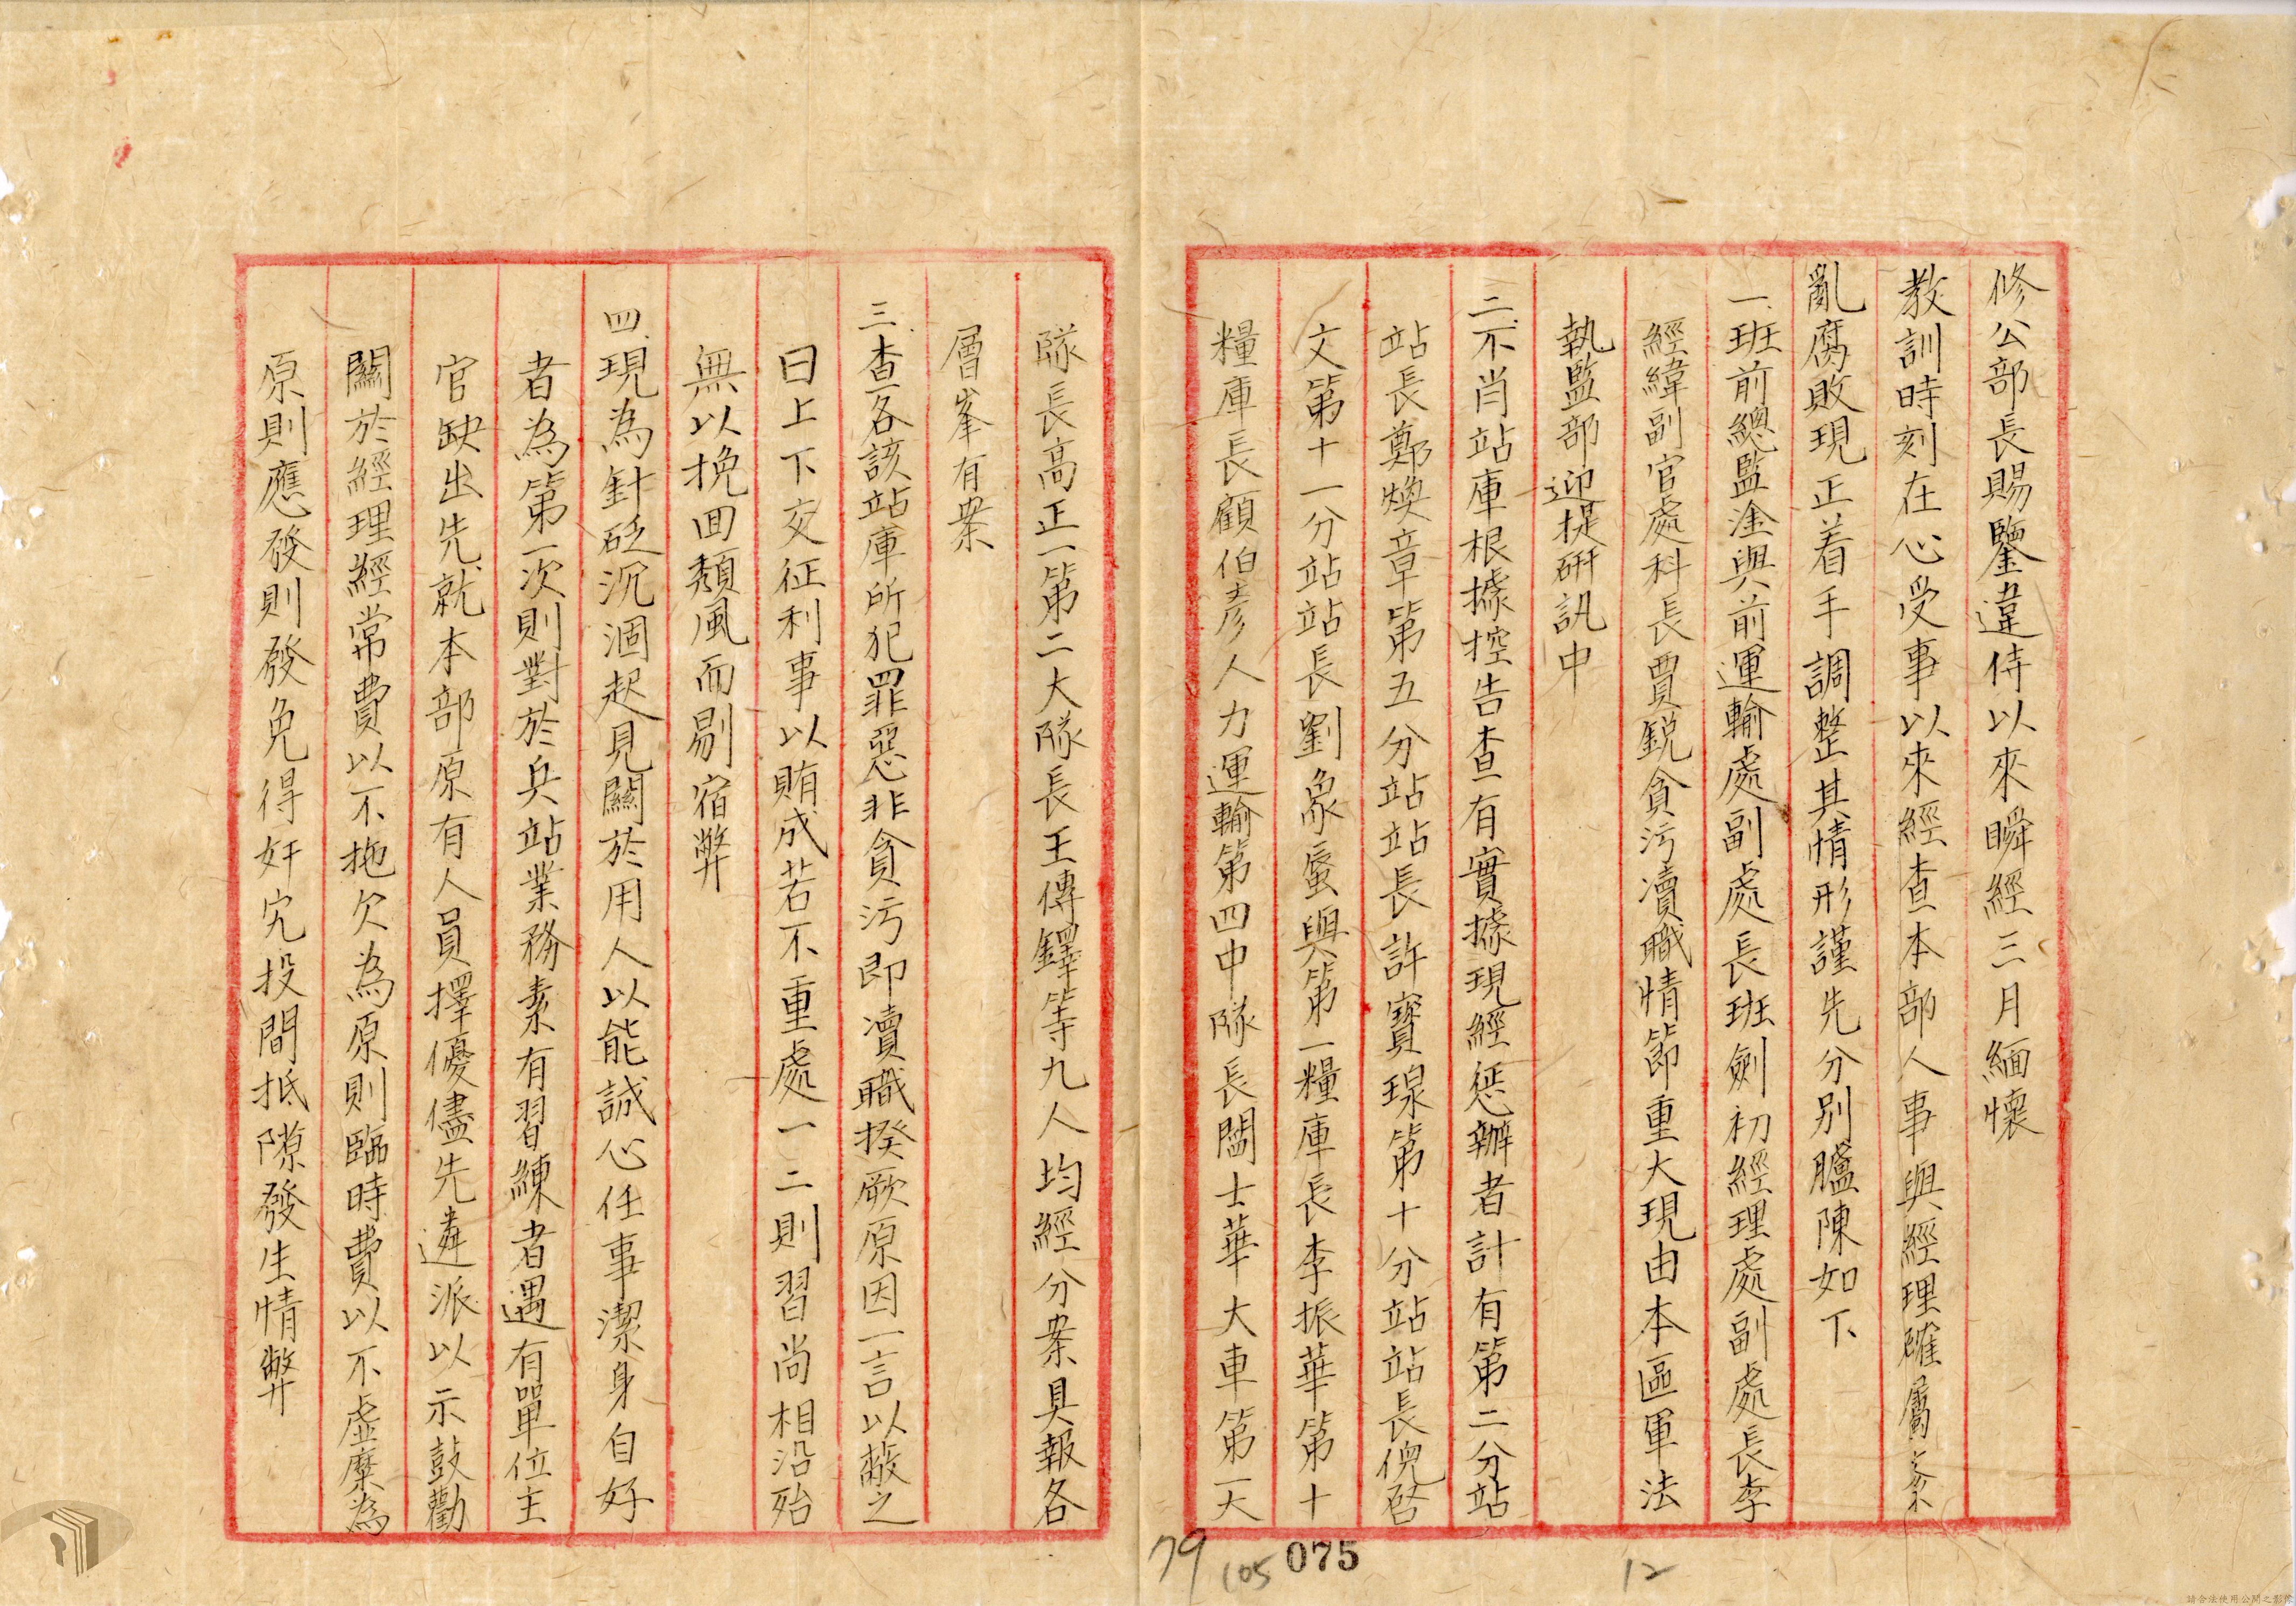 修公部長賜鑒違侍以來瞬經三月緬懷
教訓時刻在心受事以來經查本部人事與經理確屬紊
亂腐敗現正着手調整其情形謹先分別臚陳如下
一班前總監淦與前運輸處副處長班劍初經理處副處長李
經緯副官處科長賈銳貪污瀆職情節重大現由本區軍法
執監部迎提研訊中
二不肖站庫根據控告查有實據現經懲辦者計有第二分站
站長鄭煥章第五分站站長許寶琭第十分站站長倪啓
文第十一分站站長劉象蜃與第一糧庫長李振華第十
糧庫長顧伯彥人力運輸第四中隊長閻士華大車第一大
隊長高正一第二大隊長王傳鐸等九人均經分案具報各
層峯有案
三查各該站庫所犯罪惡非貪污即瀆職揆厥原因一言以蔽之
曰上下交征利事以賄成若不重處一二則習尚相沿殆
無以挽回頹風而剔宿弊
四現為針砭沉涸起見關於用人以能誠心任事潔身自好
者為第一次則對於兵站業務素有習練者遇有單位主
官缺出先就本部原有人員擇優儘先遴派以示鼓勸
關於經理經常費以不拖欠為原則臨時費以不虛糜為
原則應發則發免得奸宄投間抵隙發生情弊
79
105
075
12
請合法使用公開之影像